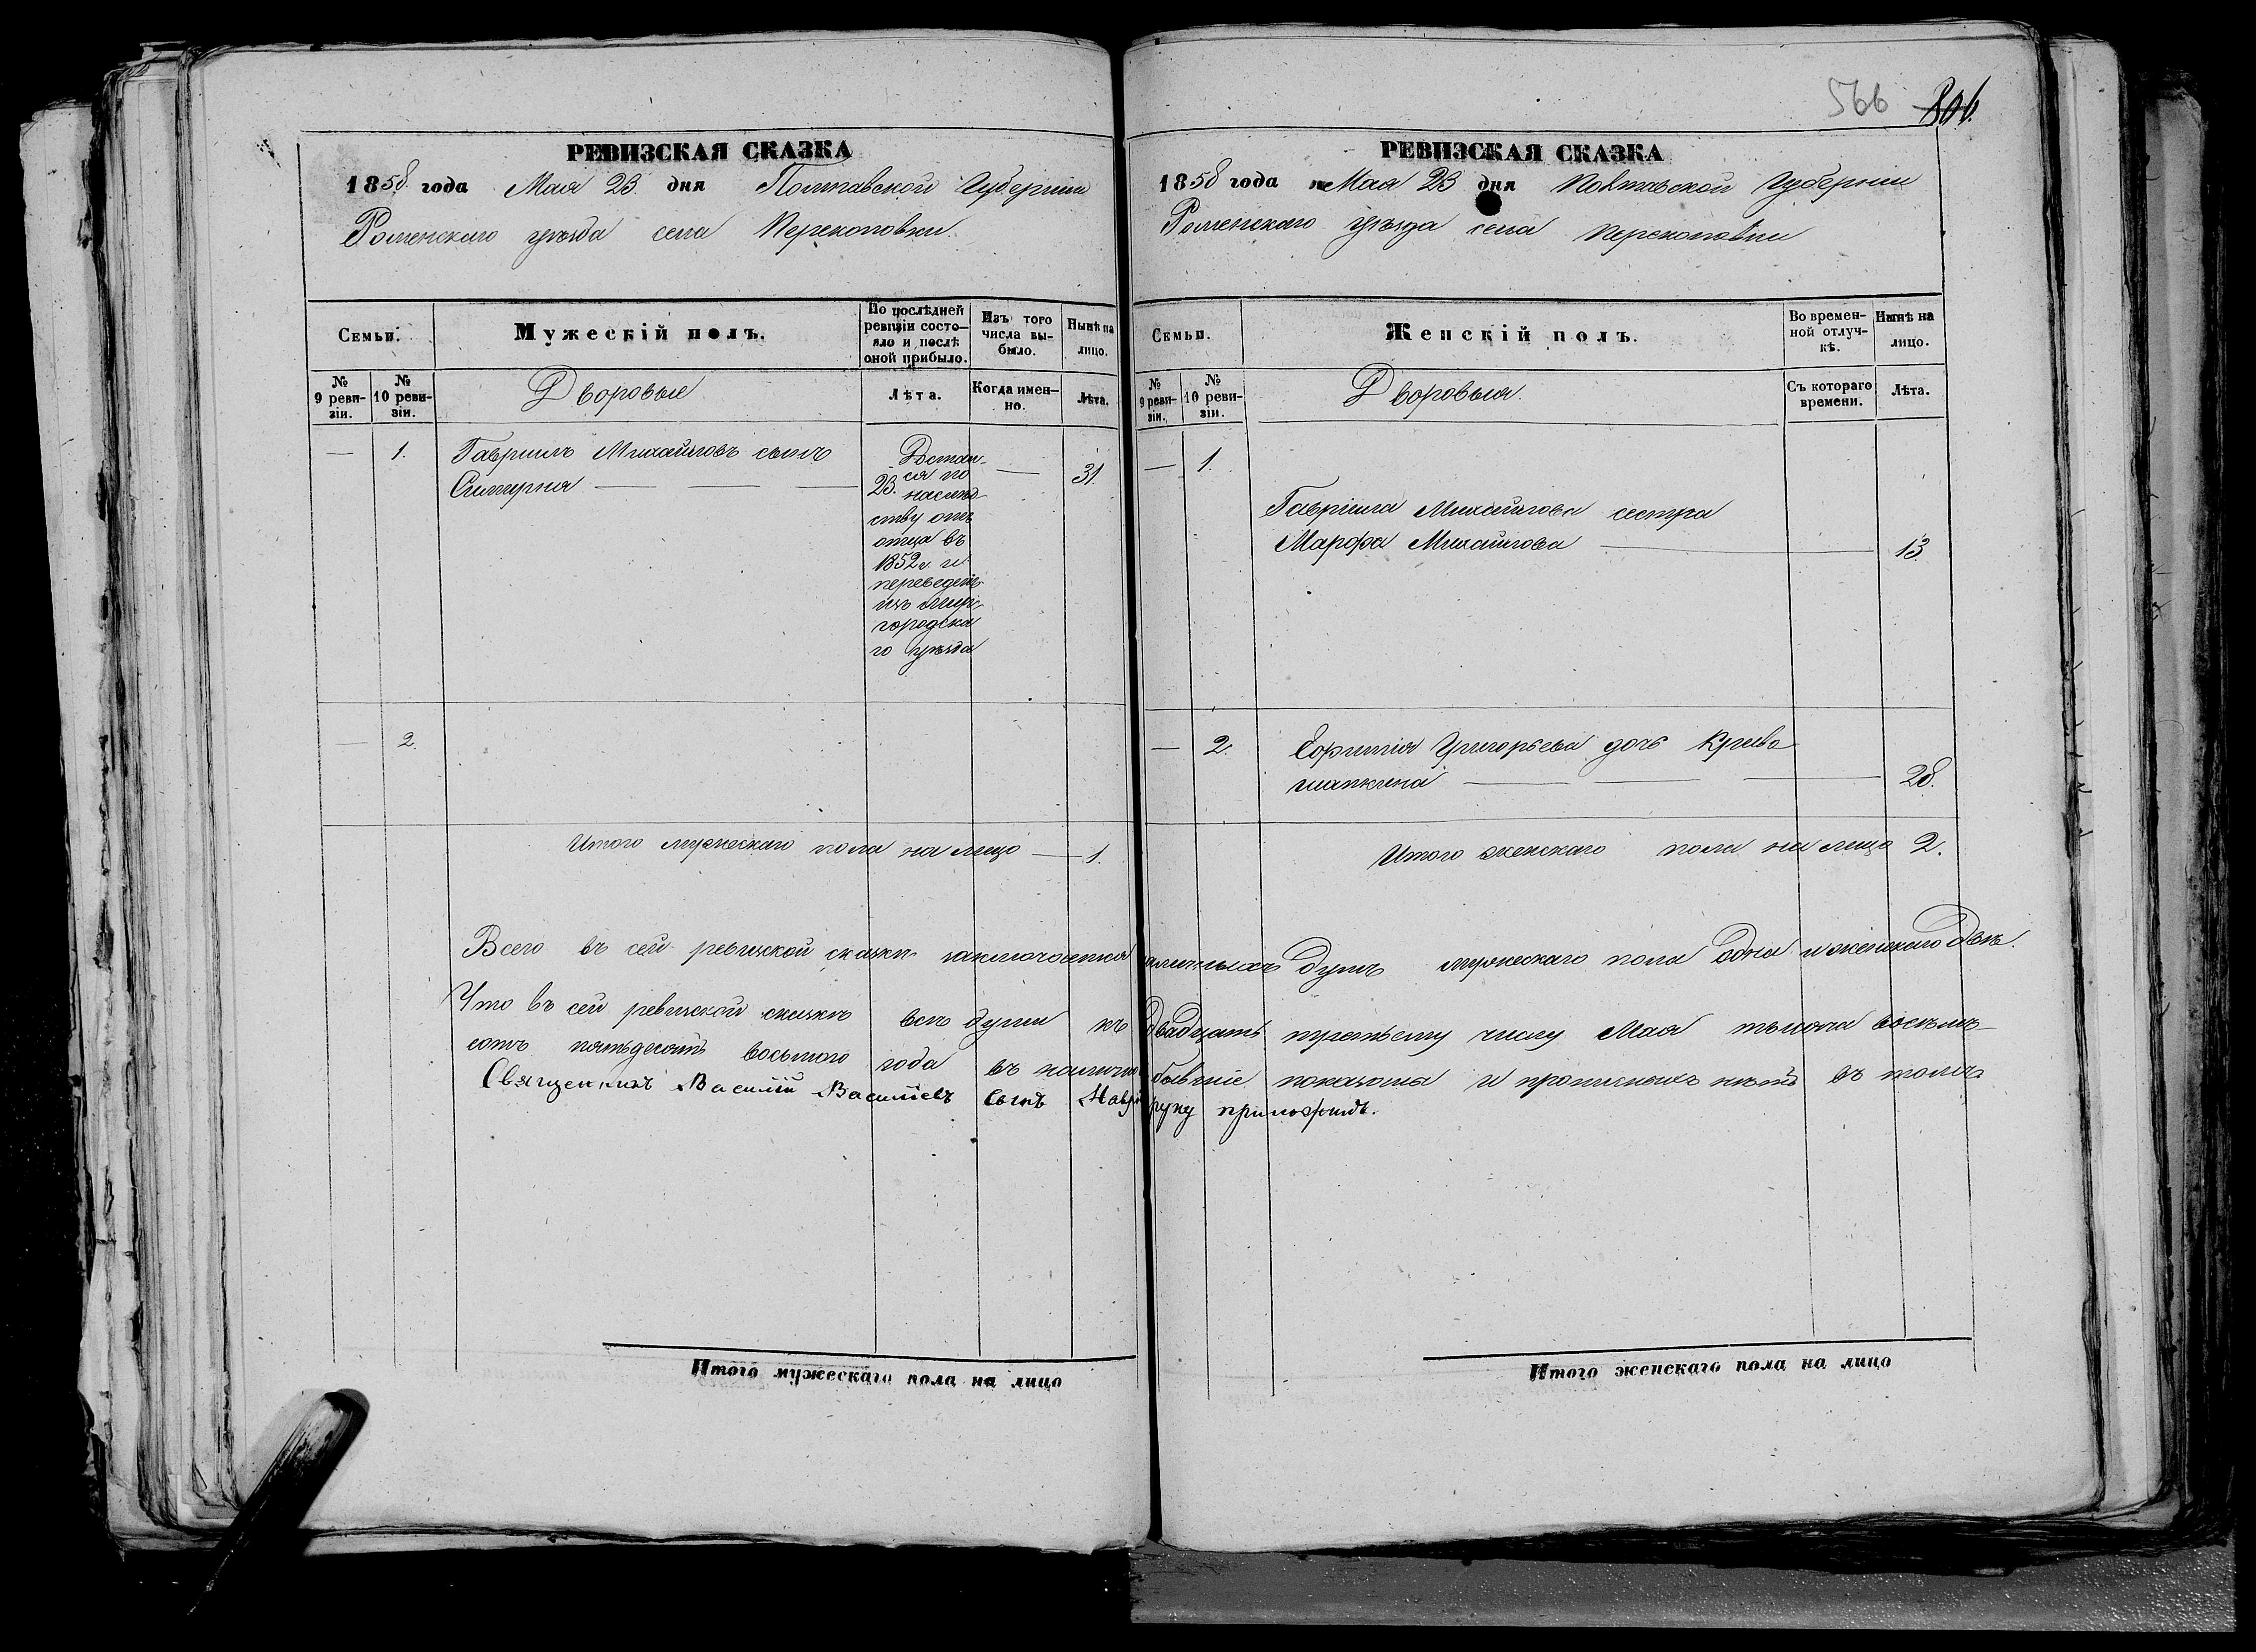 566 806.
РЕВИЗСКАЯ СКАЗКА
1858 года Мая 23 дня Полтавской Губернии
Роменскаго уѣзда села Перекоповки.
Семьи.
Мужескій полъ.
По послѣдней ревизіи состояло и послѣ оной прибыло.
Изъ того числа выбыло.
Нынѣ на лицо.
№ 9 ревизіи.
№ 10 ревизіи.
Дворовые
Лѣта.
Когда именно.
Лѣта.
— 1. Гавриилъ Михайловъ сынъ
— — — 23. — 31.
Достал-
ся по
наслѣд-
ству отъ
отца въ
1852 г. и
переведенъ
изъ Мир-
городска
го уѣзда
— 2.
Итого мужескаго пола на лицо — 1.
РЕВИЗСКАЯ СКАЗКА
1858 года Мая 23 дня Полтавской Губернии
Роменскаго уѣзда села Перекоповки
Семьи.
Женскій полъ.
Во временной отлучкѣ.
Нынѣ на лицо.
№ 9 ревизіи.
№ 10 ревизіи.
Дворовыя.
Съ котораго времени.
Лѣта.
— 1.
Гавріила Михайлова сестра
Марфа Михайлова — — 13
— 2. Ефимія Григорьева дочь Криво
шапкина — — — 28.
Итого женскаго пола на лицо 2.
Всего въ сей ревизской сказкѣ заключается наличныхъ душъ мужескаго пола одна и женскаго двѣ.
Что въ сей ревизской сказкѣ всѣ души къ двадцать третьему числу Мая тысяча восемь-
сотъ пятьдесятъ восьмого года въ налично бывшіе показаны и прописныхъ нѣтъ въ томъ
Священникъ Василій Василіевъ сынъ руку приложилъ.
Итого мужескаго пола на лицо
Итого женскаго пола на лицо